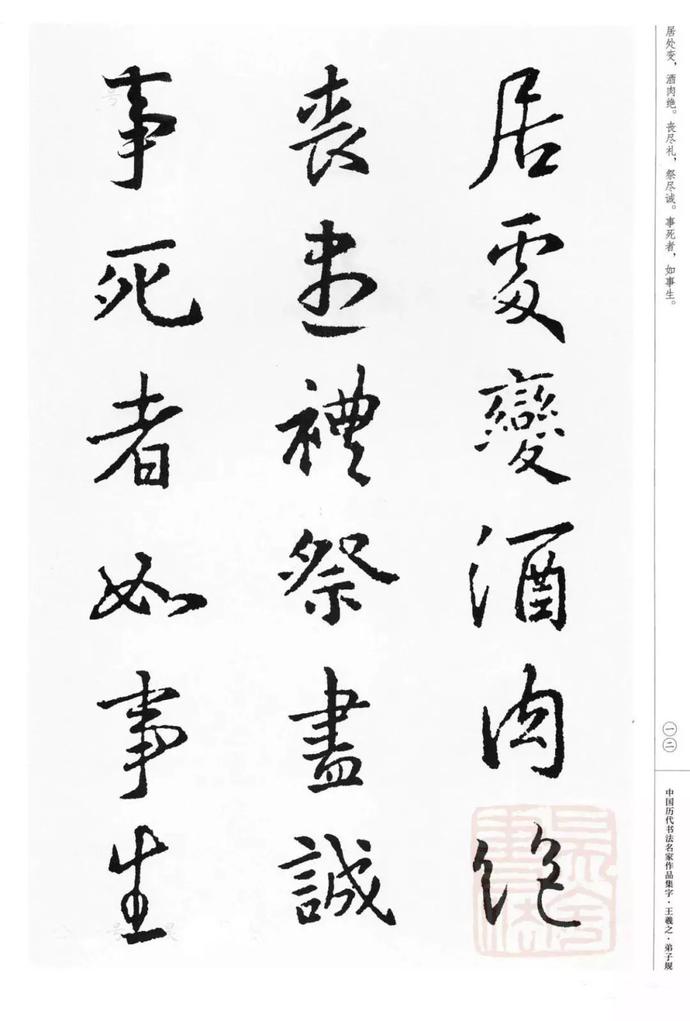 居处变，酒肉绝。丧尽礼，祭尽诚。事死者，如事生。
一二
中国历代书法名家作品集字·王羲之·弟子规
居處變酒肉絶
喪盡禮祭盡誠
事死者如事生